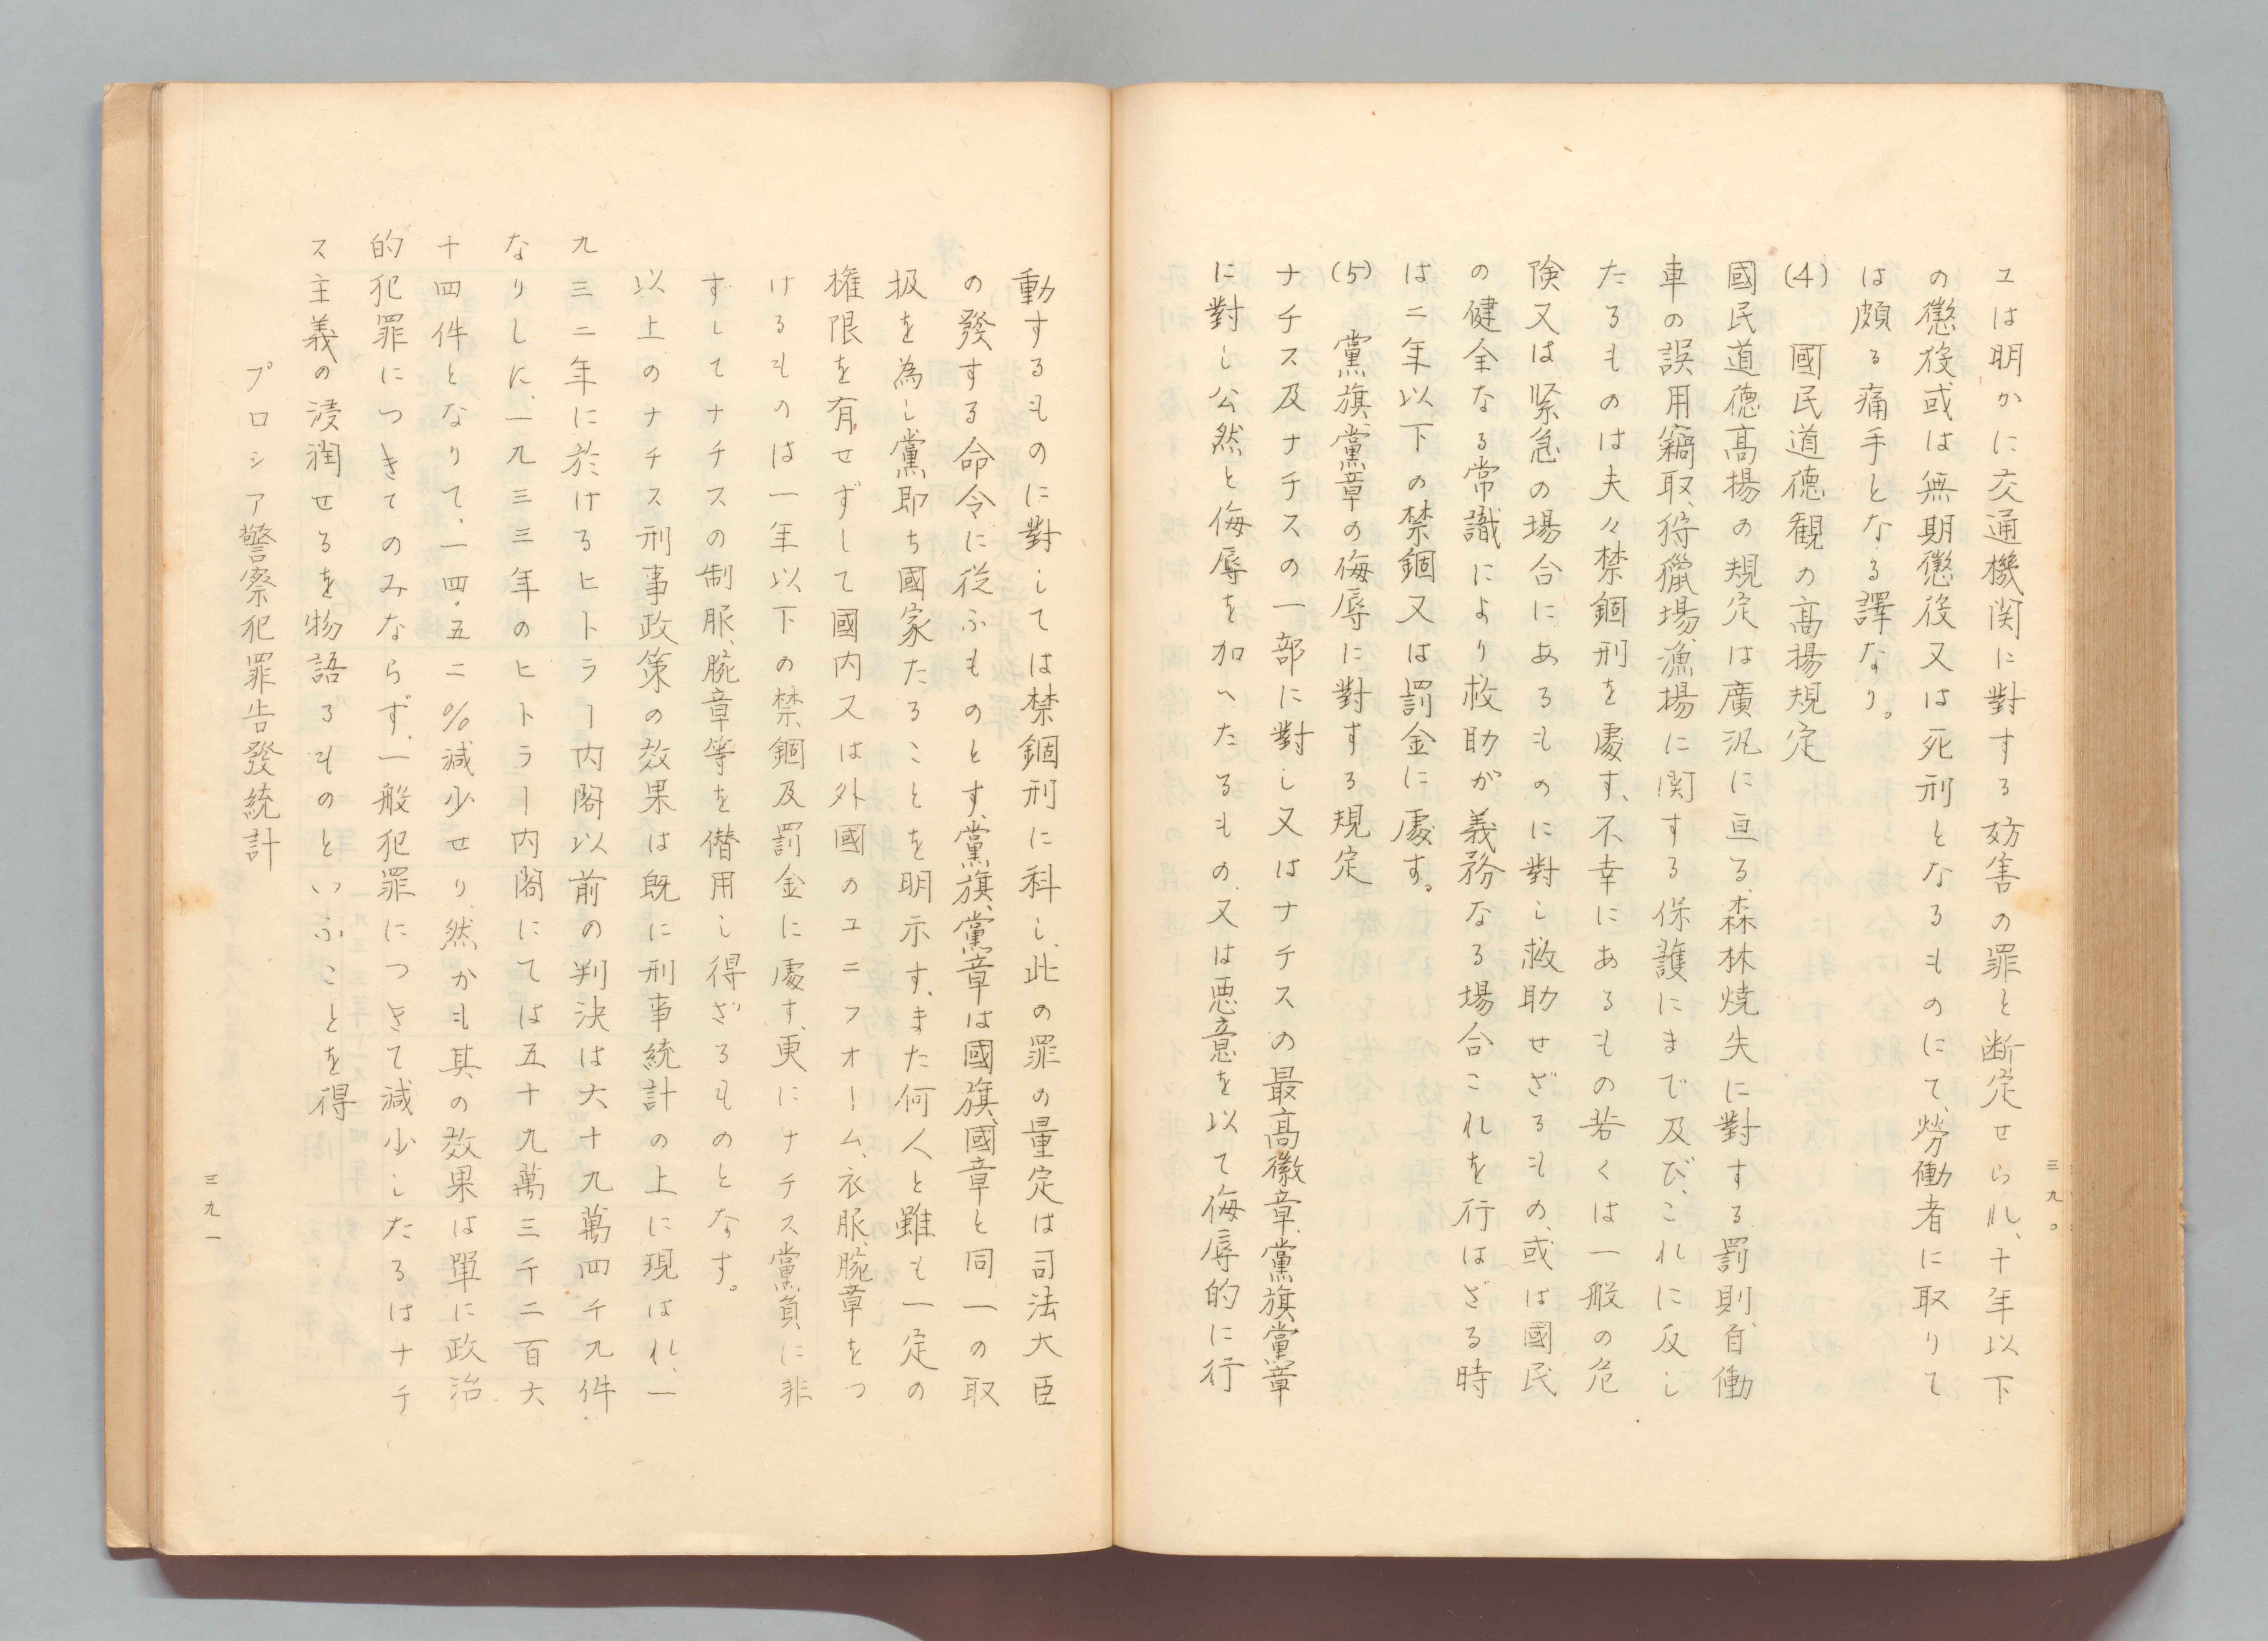 三九〇
ユは明かに交通機関に對する妨害の罪と断定せられ、十年以下
の懲役或は無期懲役又は死刑となるものにて、勞働者に取りて
は頗る痛手となる譯なり。
(4)　國民道徳観の高揚規定
國民道徳高揚の規定は廣汎に亘る、森林焼失に對する罰則、自働
車の誤用竊取、狩獵場、漁場に関する保護にまで及び、これに反し
たるものは夫々禁錮刑を處す、不幸にあるもの若くは一般の危
険又は緊急の場合にあるものに對し、救助せざるもの、或は國民
の健全なる常識により救助が義務なる場合これを行はざる時
は二年以下の禁錮又は罰金に處す。
(5)　黨旗、黨章の侮辱に對する規定
ナチス及ナチスの一部に對し又はナチスの最高徽章、黨旗黨章
に對し公然と侮辱を加へたるもの、又は悪意を以て侮辱的に行
動するものに對しては禁錮刑に科し、此の罪の量定は司法大臣
の發する命令に従ふものとす、黨旗、黨章は國旗、國章と同一の取
扱を為し、黨即ち國家たることを明示す、また何人と雖も一定の
権限を有せずして國内又は外國のユニフオーム、衣服、腕章をつ
けるものは一年以下の禁錮及罰金に處す、更にナチス黨員に非
ずしてナチスの制服、腕章等を僭用し得ざるものとなす。
以上のナチス刑事政策の効果は既に刑事統計の上に現はれ、一
九三二年に於けるヒトラー内閣以前の判決は六十九萬四千九件
なりしに、一九三三年のヒトラー内閣にては五十九萬三千二百六
十四件となりて、一四.五二%減少せり、然かも其の効果は單に政治
的犯罪につきてのみならず、一般犯罪につきて減少したるはナチ
ス主義の浸潤せるを物語るものといふことを得
プロシア警察犯罪告發統計
三九一